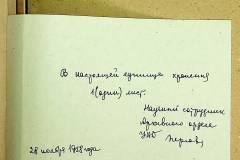 В настоящей единице хранения
1 (один) лист.
Научный сотрудник
Архивного отдела
28 ноября 1958 года